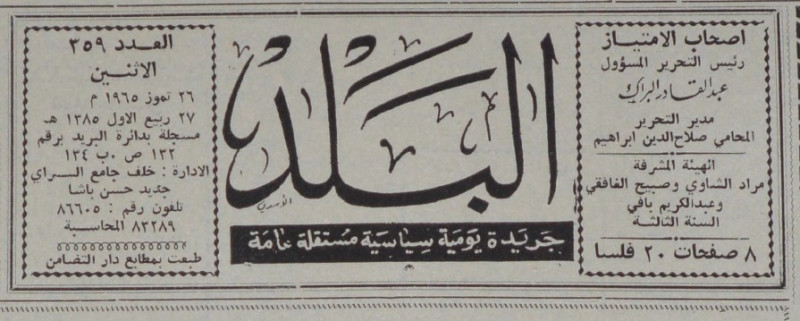 اصحاب الامتياز
رئيس التحرير المسؤول
عبدالقادر البراك
مدير التحرير
المحامي صلاح الدين ابراهيم
الهيئة المشرفة
مراد الشاوي وصبيح الغافقي
وعبدالكريم بافي
السنة الثالثة
٨ صفحات ٢٠ فلسا
البلد
جريدة يومية سياسية مستقلة عامة
العدد ٣٥٩
الاثنين
٢٦ تموز ١٩٦٥ م
٢٧ ربيع الاول ١٣٨٥ هـ
مسجلة بدائرة البريد برقم
١٣٢ ص ٠ب ١٣٤
الادارة : خلف جامع السراي
جديد حسن باشا
تلفون رقم : ٨٦٦٠٥
٨٣٢٨٩ المحاسبة
طبعت بمطابع دار التضامن